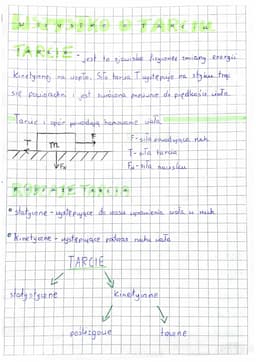 WSZYSTKO O TARCIU
TARCIE - jest to zjawisko fizyczne zmiany energii
kinetycznej na ciepło. Siła tarcia T występuje na styku trą-
się powierzchni i jest zwrócona przeciwnie do prędkości ciała.
Tarcie i opór powodują hamowanie ciała.
F - siła powodująca ruch
T - siła tarcia
FN - siła nacisku
T
m
F
FN
RODZAJE TARCIA
• statyczne - występujące do czasu wprawienia ciała w ruch
• kinetyczne - występujące podczas ruchu ciała
TARCIE
statystyczne
kinetyczne
poślizgowe
toczne